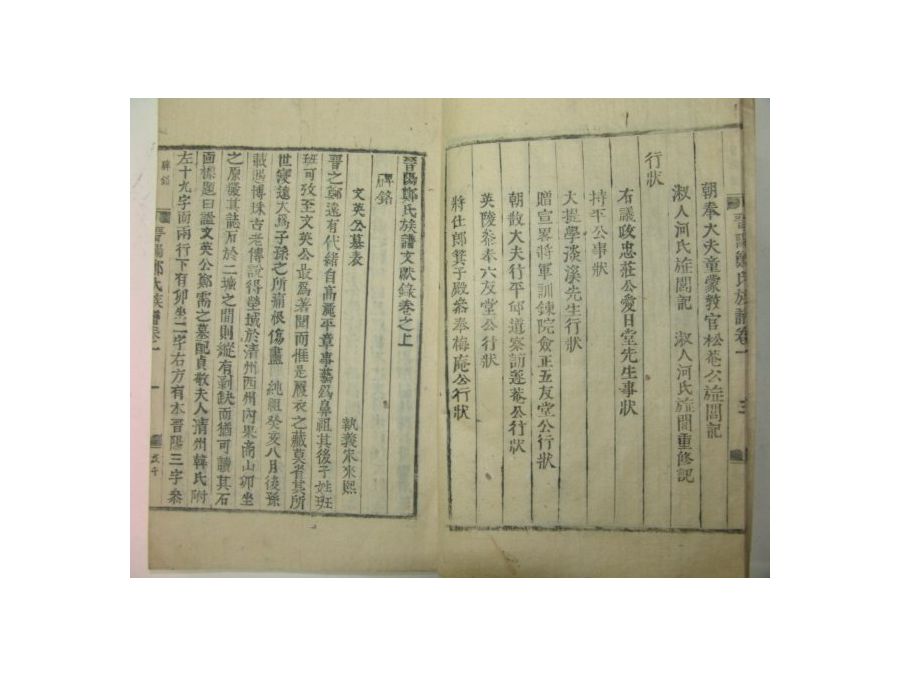 晉陽鄭氏族譜卷一
三
朝奉大夫童蒙教官松菴公旌閭記
淑人河氏旌閭記 淑人河氏旌閭重修記
行狀
右議政忠莊公愛日堂先生事狀
持平公事狀
大提學淡溪先生行狀
贈宣畧將軍訓鍊院僉正五友堂公行狀
朝散大夫行平邱道察訪蓬菴公行狀
英陵叅奉六友堂公行狀
將仕郎箕子殿叅奉梅庵公行狀
晉陽鄭氏族譜文獻錄卷之上
碑銘
文英公墓表
執義宋來熙
晉之鄭遠有代緒自高麗平章事藝爲鼻祖其後子姓班
班可攷至文英公最爲著聞而惟是履衣之藏莫省其所
世寖遠大爲子孫之所痛恨傷盡 純祖癸亥八月後孫
載陽博採古老傳說得塋域於清州西州內果商山卯坐
之原覆其誌石於二塽之間則縱有剥缺而猶可讀其石
面標題曰諡文英公鄭需之墓配貞敬夫人清州韓氏附
左十九字而兩行下有卯坐二字右方有本晉陽三字叅
碑銘
晉陽鄭氏族譜卷一
一